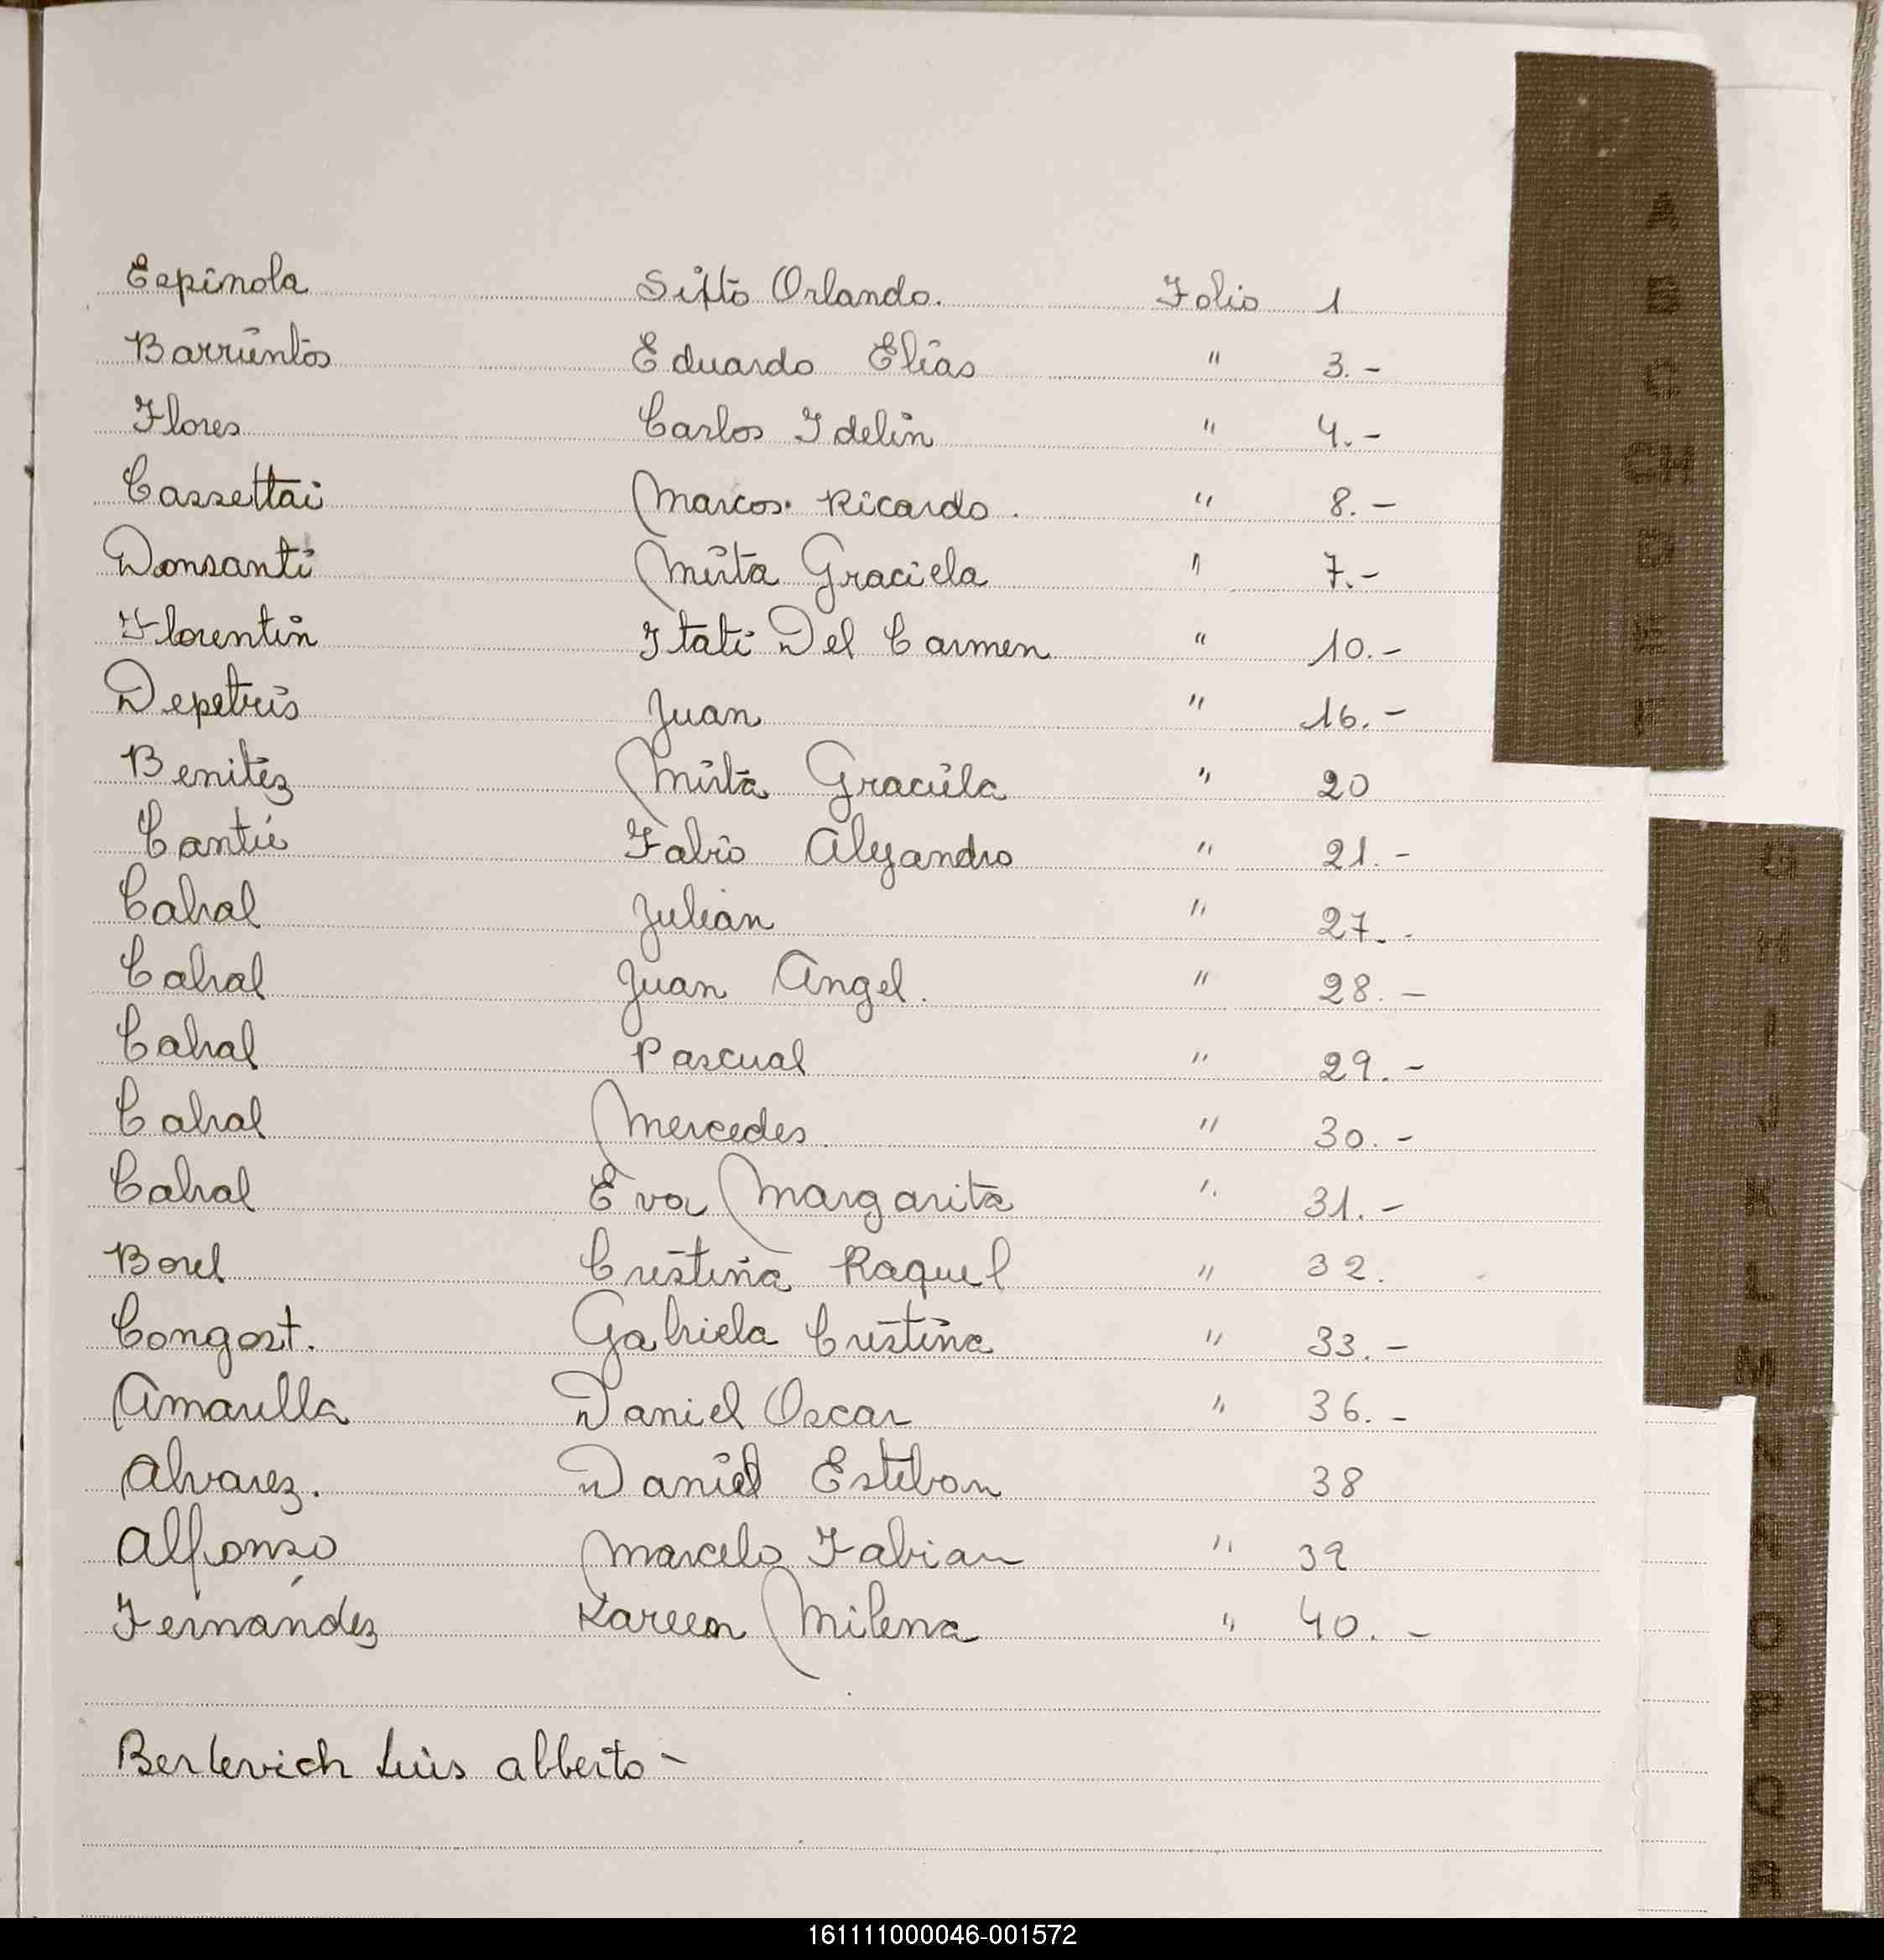 Espinola Sixto Orlando. Folio 1
Barrientos Eduardo Elias " 3.-
Flores Carlos Idelin " 4.-
Cassettai Marcos. Ricardo. " 8.-
Donsanti Mirta Graciela " 7.-
Florentin Itati Del Carmen " 10.-
Depetris Juan " 16.-
Benitez Mirta Graciela " 20
Cantú Fabio Alejandro " 21.-
Cabral Julian " 27.-
Cabral Juan Angel. " 28.-
Cabral Pascual " 29.-
Cabral Mercedes. " 30.-
Cabral Eva Margarita " 31.-
Borel Cristina Raquel " 32.
Congost. Gabriela Cristina " 33.-
Amarilla Daniel Oscar " 36.-
Alvarez. Daniel Esteban 38
Alfonzo Marcelo Fabian " 39
Fernández Kareen Milena " 40.-
Berlevich Luis alberto -
A
B
C
CH
D
E
F
G
H
I
J
K
L
M
N
Ñ
O
P
Q
R
161111000046-001572